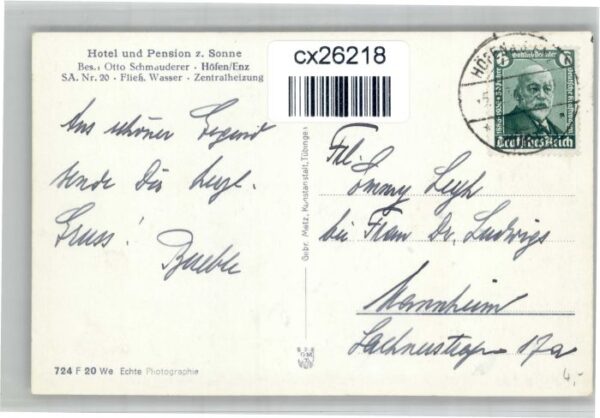 Hotel und Pension z. Sonne
Bes.: Otto Schmauderer - Höfen/Enz
SA. Nr. 20 - Fließ. Wasser - Zentralheizung
cx26218
HÖFEN
6
Deutsches Reich
Aus schöner Gegend
sende Dir herzl.
Gruss!
Gebr. Metz, Kunstanstalt, Tübingen
Frl.
Emmy
bei Frau Dr. Ludwigs
Mannheim
Lachnerstrasse 17a
724 F 20 We Echte Photographie
4,-